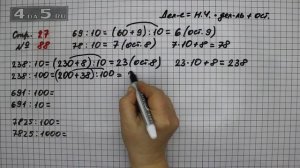 4 из 5 ru
Стр. 27
№ 88
Дел-е = Н.Ч. · дел-ль + ост.
69 : 10 = (60 + 9) : 10 = 6 (ост. 9)
78 : 10 = 7 (ост. 8) 7 · 10 + 8 = 78
238 : 10 = (230 + 8) : 10 = 23 (ост. 8) 23 · 10 + 8 = 238
238 : 100 = (200 + 38) : 100 =
691 : 10 =
691 : 100 =
7825 : 100 =
7825 : 1000 =